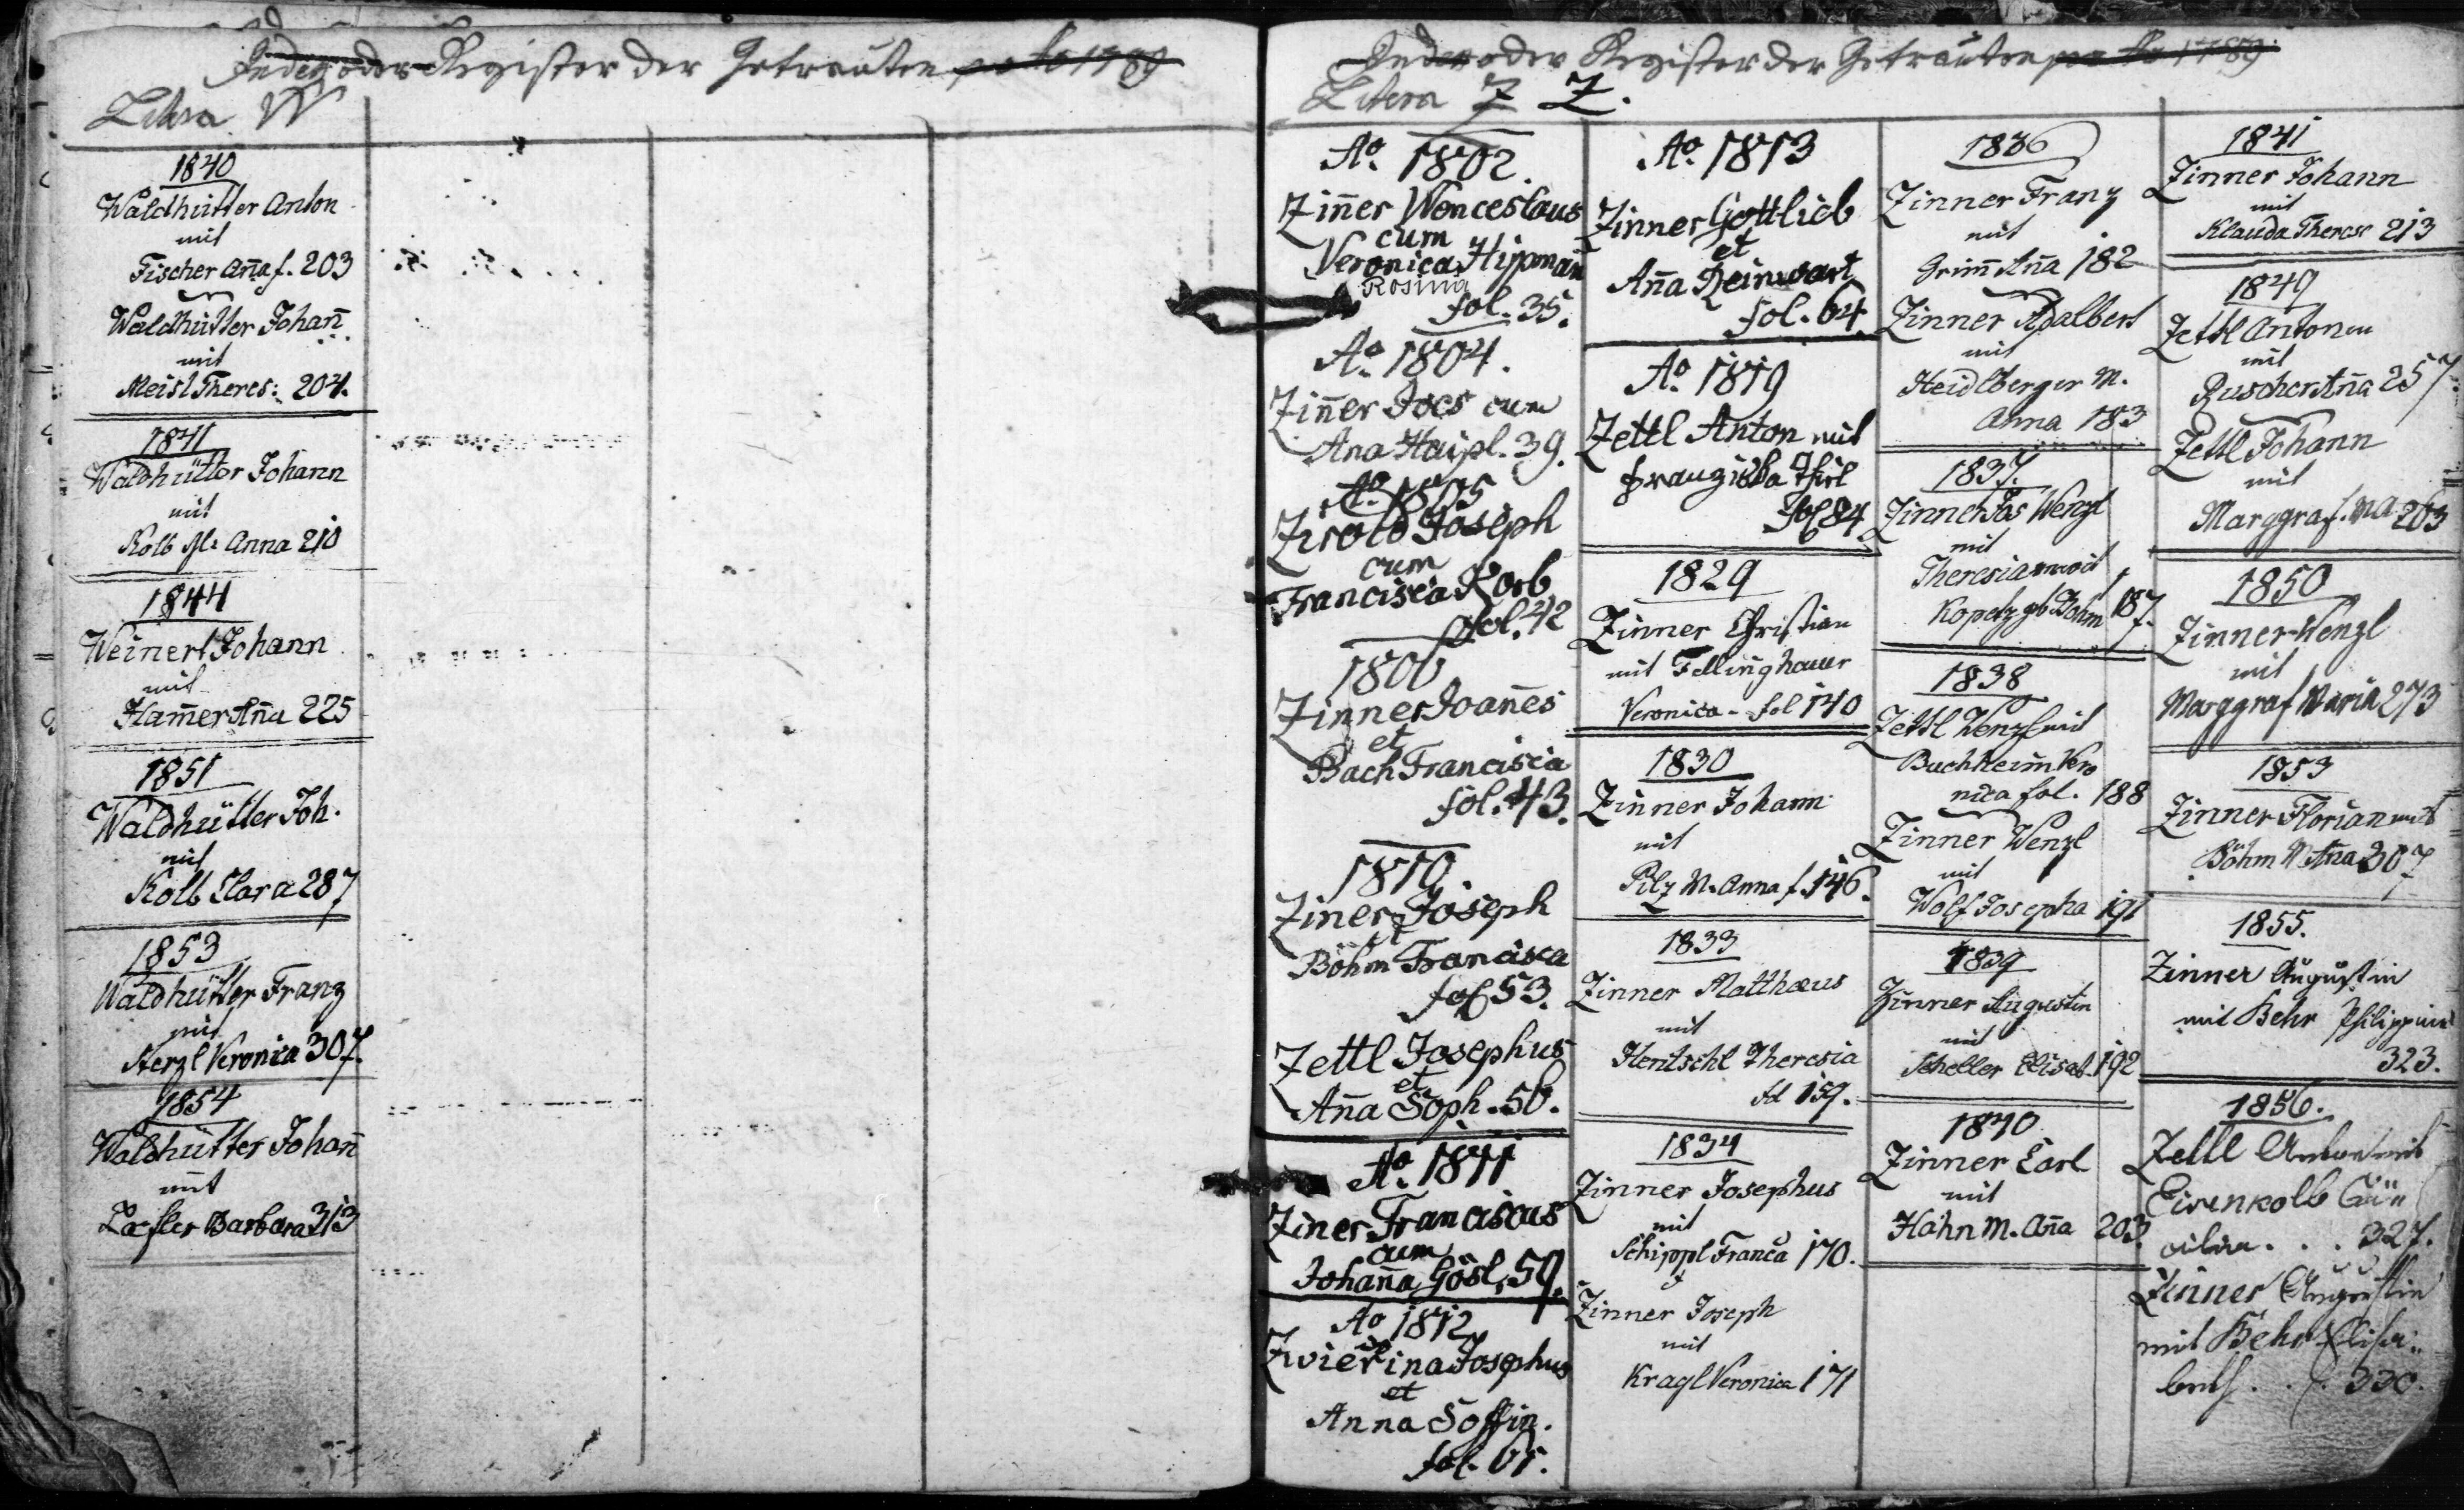 Index oder Register der Getrauten pro Ao 1789
Litera W
1840
Waldhütter Anton
mit
Fischer Aña f. 203
Waldhütter Johañ
mit
Meisl Theres: 204.
1841
Waldhütter Johann
mit
Kolb M: Anna 210
1844
Weinert Johann
mit
Ham̃er Aña 225
1851
Waldhütter Joh.
mit
Kolb Clara 287
1853
Waldhütter Franz
mit
Herzl Veronica 307.
1854
Waldhütter Johañ
mit
Barbara 313
Index oder Register der Getrauten pro Ao 1789
Litera Z Z.
Ao. 1802.
Ziñer Wenceslaus
cum
Veronica Hipmañ
Rosina
fol. 35.
Ao. 1804.
Ziñer Joes cum
Ana Haipl. 39.
Ao. 1805
Zirolo Joseph
cum
Francisca Korb
fol. 42
1806
Zinner Joañes
et
Bach Francisca
fol. 43.
1810.
Ziner Joseph
et
Böhm Francisca
fol 53.
Zettl Josephus
et
Aña Soph. 56.
Ao. 1811
Ziner Franciscus
cum
Johaña Gösl. 59.
Ao 1812
Zwiéřina Josephus
et
Anna Soffin.
fol. 61.
Ao. 1813
Zinner Gottlieb
et
Aña Reinwart
fol. 64.
Ao 1819
Zettl Anton mit
Franziska
fol 84
1829
Zinner Christian
mit Fellinghauer
Veronica - fol 140
1830
Zinner Johann
mit
Pilz M. Anna f. 146.
1833
Zinner Matthæus
mit
Hentschl Theresia
fol 159.
1834
Zinner Josephus
mit
Schippl Franca 170.
Zinner Joseph
mit
Kragl Veronica 171
1836
Zinner Franz
mit
Grim̃ Aña 182
Zinner Adalbert
mit
Heidlberger M.
Anna 183
1837.
Zinner Jos Wenzl
mit
Theresia
Kopetz geb. Böhm 187.
1838
Zettl Wenzl mit
Buchheim Vero
nica fol. 188
Zinner Wenzl
mit
Wolf Josepha 191
1839
Zinner Augustin
mit
Scheller Elisab. 192
1840
Zinner Carl
mit
Hahn M. Aña 203.
1841
Zinner Johann
mit
Klauda Therese 213
1849
Zettl Anton
mit
Ruscher Aña 257.
Zettl Johann
mit
Marggraf. 263
1850
Zinner Wenzl
mit
Marggraf Maria 273
1853
Zinner Florian mit
Böhm M Aña 307
1855.
Zinner Augustin
mit Behr Philippine
323.
1856.
Zettl Anton mit
Eisenkolb Cä=
cilia. . . 327.
Zinner Augustin
mit Behr Elisa=
beth . . . 330.